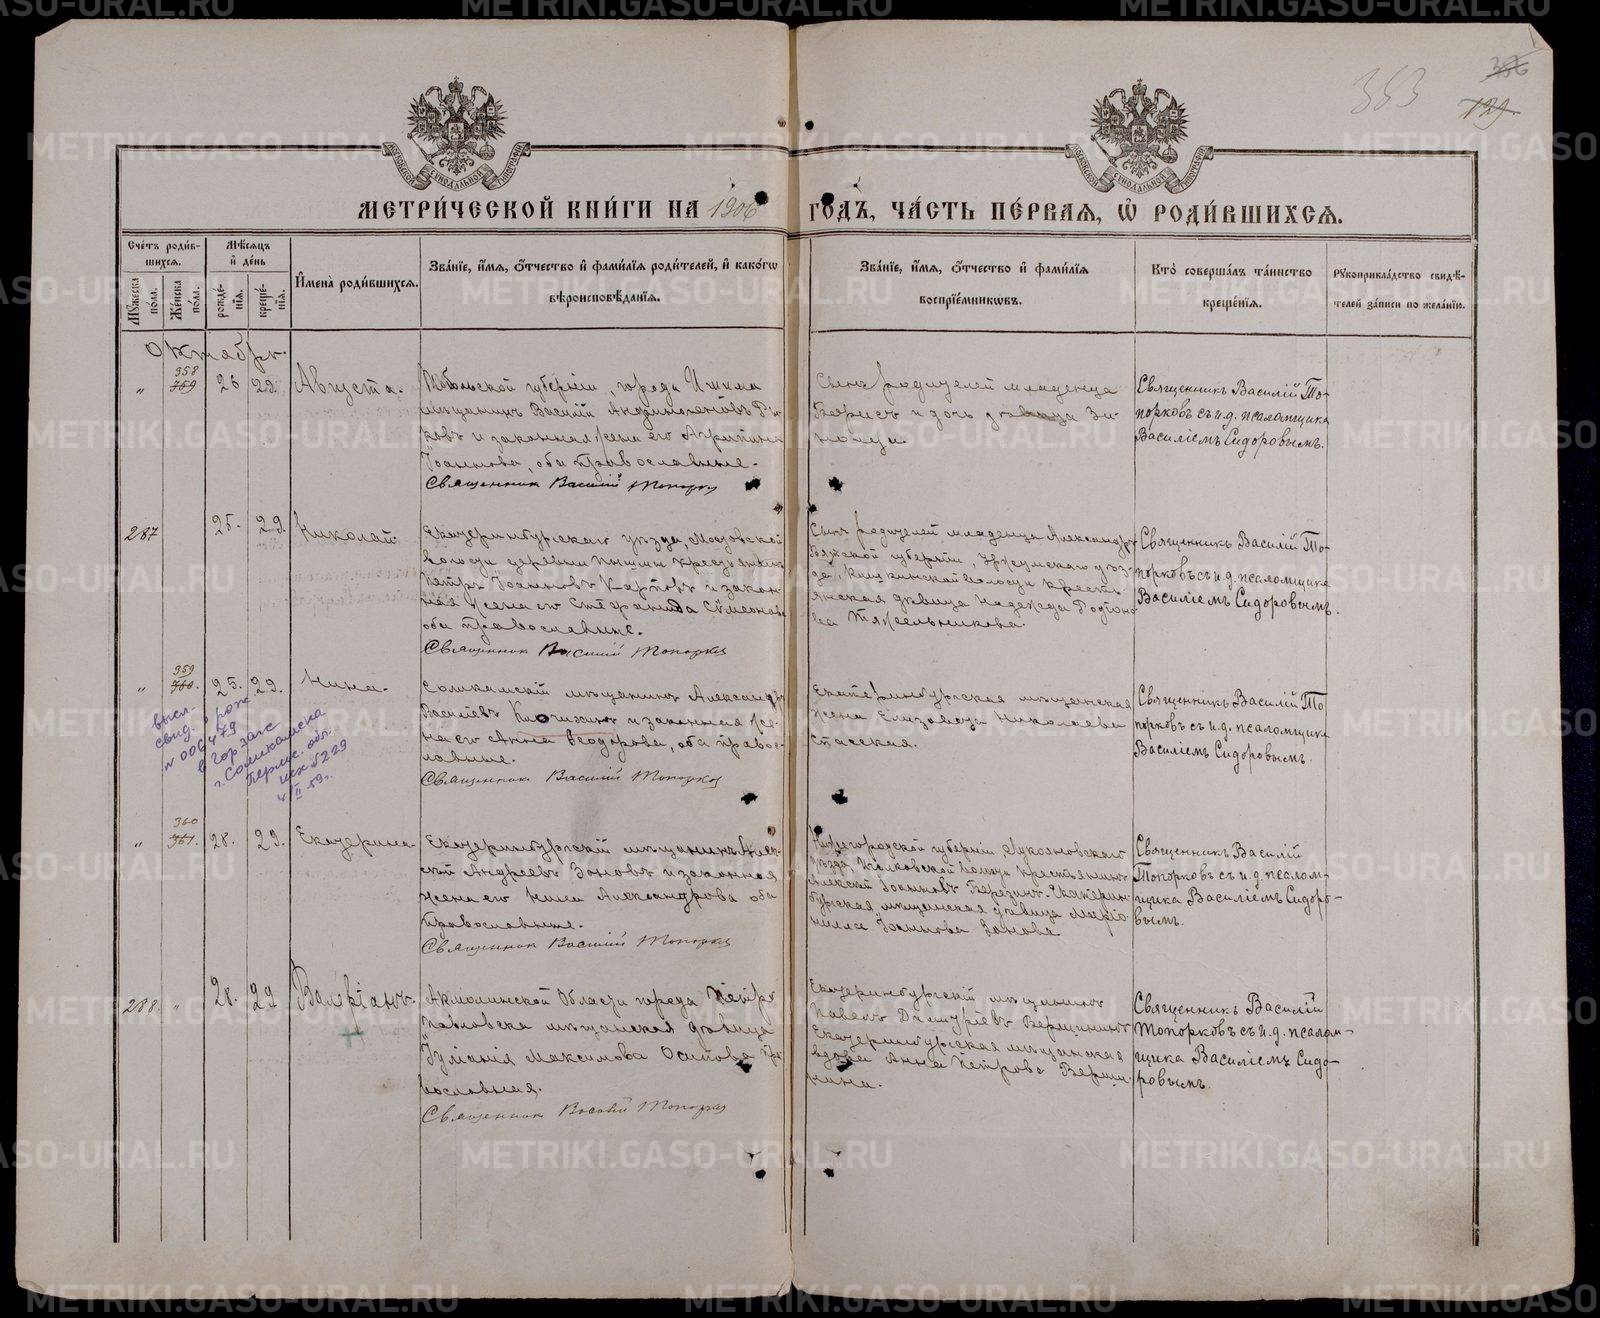 353
386
129.
МОСКОВСКОЙ СѴНОДАЛЬНОЙ ТИПОГРАФІИ
МОСКОВСКОЙ СѴНОДАЛЬНОЙ ТИПОГРАФІИ
МЕТРИ́ЧЕСКОЙ КНИ́ГИ НА 1906 ГО́ДЪ, ЧА́СТЬ ПЕ́РВАЯ, Ѽ РОДИ́ВШИХСЯ.
Сче́тъ роди́в-
шихся.
Му́жеска по́ла.
Же́нска по́ла.
Мѣ́сяцъ
и҆ де́нь
рожде́-
нїя.
креще́-
нїя.
И҆мена̀ роди́вшихся.
Зва́нїе, и҆́мя, ѻ҆́тчество и҆ фами́лїя роди́телей, и҆ како́гѡ
вѣроисповѣ́данїя.
Зва́нїе, и҆́мя, ѻ҆́тчество и҆ фами́лїя
воспрїе́мникѡвъ.
Кто̀ соверша́лъ та́инство
креще́нїя.
Рꙋкоприкла́дство свидѣ́-
телей за́писи по жела́нїю.
Октябрь.
„ 358 759 26 29. Августа.
Тобольской губерніи, города Ишима
мѣщанинъ Василій
и законная жена его Агрипина
Іоаннова, оба православные.
Священник Василий Топорков
Сынъ родителей младенца
Борисъ и дочь дѣвица Зи-
наида.
Священникъ Василій То-
порковъ съ и. д. псаломщика
Василіемъ Сидоровымъ.
287 25. 29. Николай.
Екатеринбургскаго уѣзда,
волости деревни крестьянинъ
Петръ Іоанновъ Карповъ и закон-
ная жена его Стефанида Сѵмеонова
оба православные.
Священник Василий Топорков
Сынъ родителей младенца Александръ
Вятской губерніи, Уржумскаго уѣз-
да, волости кресть-
янская дѣвица Надежда Родіоно-
ва Тяжельникова.
Священникъ Василій То-
порковъ съ и. д. псаломщика
Василіемъ Сидоровымъ.
„ 359 760. 25. 29. Нина.
высл.
свид. о рож
№ 006479
в гор загс
г. Соликамска
Пермс. обл.
исх №229
4/II 59 г.
Соликамскій мѣщанинъ Александръ
Василіевъ и законная же-
на его Анна Ѳеодорова, оба право-
славные.
Священник Василий Топорков
Екатеринбургская мѣщанская
жена Елизавета Николаева
Спасская.
Священникъ Василій То-
порковъ съ и. д. псаломщика
Василіемъ Сидоровымъ.
„ 360 761. 28. 29. Екатерина.
Екатеринбургскій мѣщанинъ Алек-
сѣй Андреевъ Зоновъ и законная
жена его Александрова оба
православные.
Священник Василий Топорков
Нижегородской губерніи, Лукояновскаго
уѣзда, волости крестьянинъ
Алексѣй Іоанновъ Березинъ. Екатерин-
бургская мѣщанская дѣвица Марио-
нилла Іоаннова Зонова.
Священникъ Василій
Топорковъ съ и. д. псалом-
щика Василіемъ Сидоро-
вымъ.
288. „ 28. 29. Валеріанъ.
Акмолинской Области города Петро-
павловска мѣщанская дѣвица
Іуліанія Максимова Осипова пра-
вославная.
Священник Василий Топорков
Екатеринбургскій мѣщанинъ
Павелъ Димитріевъ Вершининъ
Екатеринбургская мѣщанская
вдова Анна Петрова Верши-
нина.
Священникъ Василій
Топорковъ съ и. д. псалом-
щика Василіемъ Сидо-
ровымъ.
METRIKI.GASO-URAL.RU